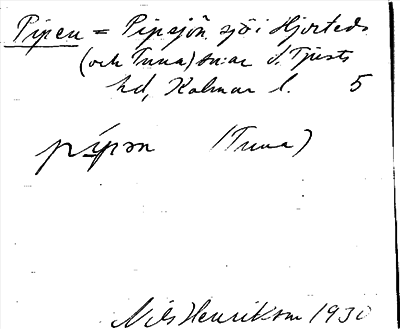 Pipen = Pipsjön sjö i Hjorteds
(och Tuna) sn:ar S. Tjusts
hd, Kalmar l. 5
pípən (Tuna)
Nils Henrikson 1930